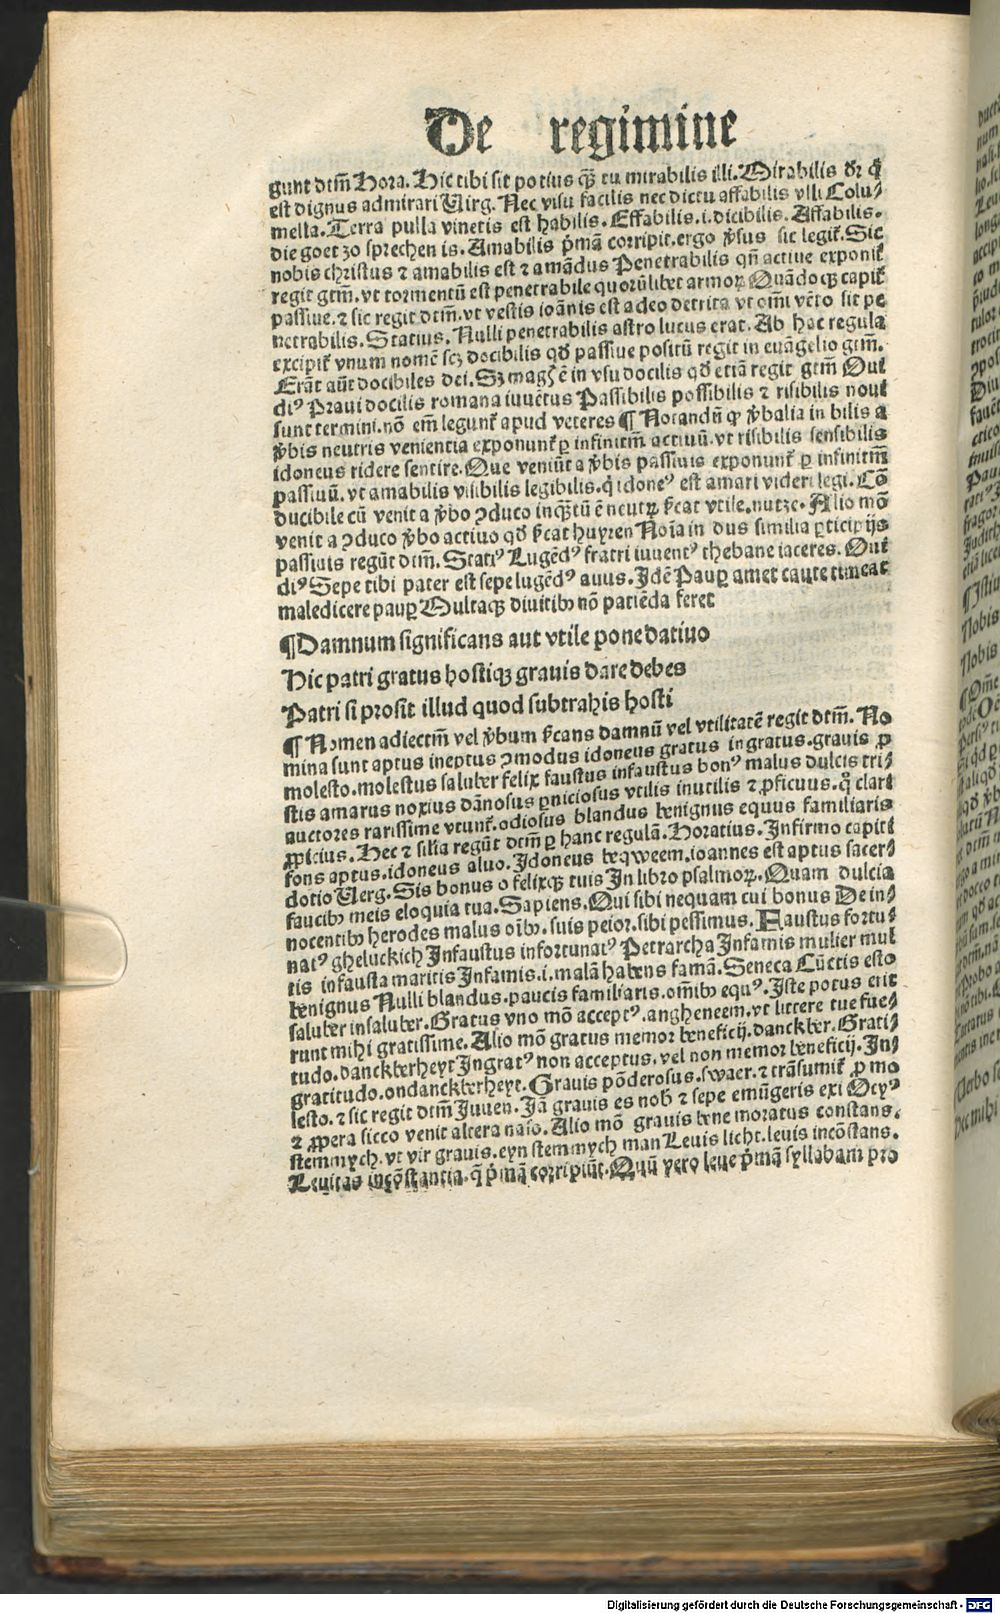 De regimine
gunt dtm̄ Hora. Hic tibi sit potius qꝫ̄ tu mirabilis illi. Mirabilis dr̄ q̇
est dignus admirari Uirg. Nec visu facilis nec dictu affabilis vlli Colu⸗
mella. Terra pulla vinetis est habilis. Effabilis .i. dicibilis. Affabilis.
die goet zo sprechen is. Amabilis p̄mā corripit. ergo v̓sus sic legit᷑. Sic
nobis christus ⁊ amabilis est ⁊ amādus Penetrabilis qn̄ actiue exponit᷑
regit gtm̄. vt tormentū est penetrabile quorūlibet armoꝝ Quādoqꝫ capit᷑
passiue. ⁊ sic regit dtm̄. vt vestis ioānis est adeo detrita vt om̄i vēto sit pe
netrabilis. Statius. Nulli penetrabilis astro lucus erat. Ab hac regula
excipit᷑ vnum nomē scꝫ docibilis qd̄ passiue positū regit in euāgelio gtm̄.
Erāt aūt docibiles dei. Sꝫ magꝭ ē in vsu docilis qd̄ etiā regit gtm̄ Oui
diꝰ Praui docilis romana iuuētus Passibilis possibilis ⁊ risibilis noui
sunt termini. nō em̄ legunt᷑ apud veteres ¶ Notandū ꝙ v̓balia in bilis a
v̓bis neutris venientia exponunt᷑ ꝑ infinitm̄ actiuū. vt risibilis sensibilis
idoneus ridere sentire. Que veniūt a v̓bis passiuis exponunt᷑ ꝑ infinitm̄
passiuū. vt amabilis visibilis legibilis. q̇ idoneꝰ est amari videri legi. Cō
ducibile cū venit a v̓bo ꝯduco inqꝫtū ē neutꝝ s̓cat vtile. nutze. Alio mō
venit a ꝯduco v̓bo actiuo qd̄ s̓cat huyren Noīa in dus similia ꝑticipijs
passiuis regūt dtm̄. Statiꝰ Lugēdꝰ fratri iuuentꝰ thebane iaceres. Oui
diꝰ Sepe tibi pater est sepe lugēdꝰ auus. Idē Pauꝑ amet caute timeat
maledicere pauꝑ Multaqꝫ diuitibꝫ nō patiēda feret
¶ Damnum significans aut vtile pone datiuo
Hic patri gratus hostiqꝫ grauis dare debes
Patri si prosit illud quod subtrahis hosti
¶ Nomen adiectm̄ vel v̓bum s̓cans damnū vel vtilitatē regit dtm̄. No
mina sunt aptus ineptus ꝯmodus idoneus gratus ingratus. grauis ꝓ
molesto. molestus saluber felix faustus infaustus bonꝰ malus dulcis tri⸗
stis amarus noxius dānosus ꝑniciosus vtilis inutilis ⁊ ꝓficuus. q̊ clari
auctores rarissime vtunt᷑. odiosus blandus benignus equus familiaris
ꝓpicius. Hec ⁊ silia regūt dtm̄ ꝑ hanc regulā. Horatius. Infirmo capiti
fons aptus. idoneus aluo. Idoneus beqweem. ioannes est aptus sacer⸗
dotio Uerg. Sis bonus o felixqꝫ tuis In libro psalmoꝝ. Quam dulcia
faucibꝫ meis eloquia tua. Sapiens. Qui sibi nequam cui bonus De in⸗
nocentibꝫ herodes malus oībꝫ. suis peior. sibi pessimus. Faustus fortu⸗
natꝰ gheluckich Infaustus infortunatꝰ Petrarcha Infamis mulier mul
tis infausta maritis Infamis .i. malā habens famā. Seneca Cūctis esto
benignus Nulli blandus. paucis familiaris. om̄ibꝫ equꝰ. Iste potus erit
saluber insaluber. Gratus vno mō acceptꝰ. angheneem. vt littere tue fue⸗
runt mihi gratissime. Alio mō gratus memor beneficij. danckber. Grati⸗
tudo. danckberheyt Ingratꝰ non acceptus. vel non memor beneficij. In⸗
gratitudo. ondanckberheyt. Grauis pōderosus. swaer. ⁊ trāsumit᷑ ꝓ mo
lesto. ⁊ sic regit dtm̄ Iuuen. Iā grauis es nob̄ ⁊ sepe emūgeris exi Ocyꝰ
⁊ ꝓpera sicco venit altera naso. Alio mō grauis bene moratus constans.
stemmych. vt vir grauis. eyn stemmych man Leuis licht. leuis incōstans.
Leuitas incōstantia. q̄ p̄mā corripiūt. Quū vero leue p̄mā syllabam pro
Digitalisierung gefördert durch die Deutsche Forschungsgemeinschaft - DFG